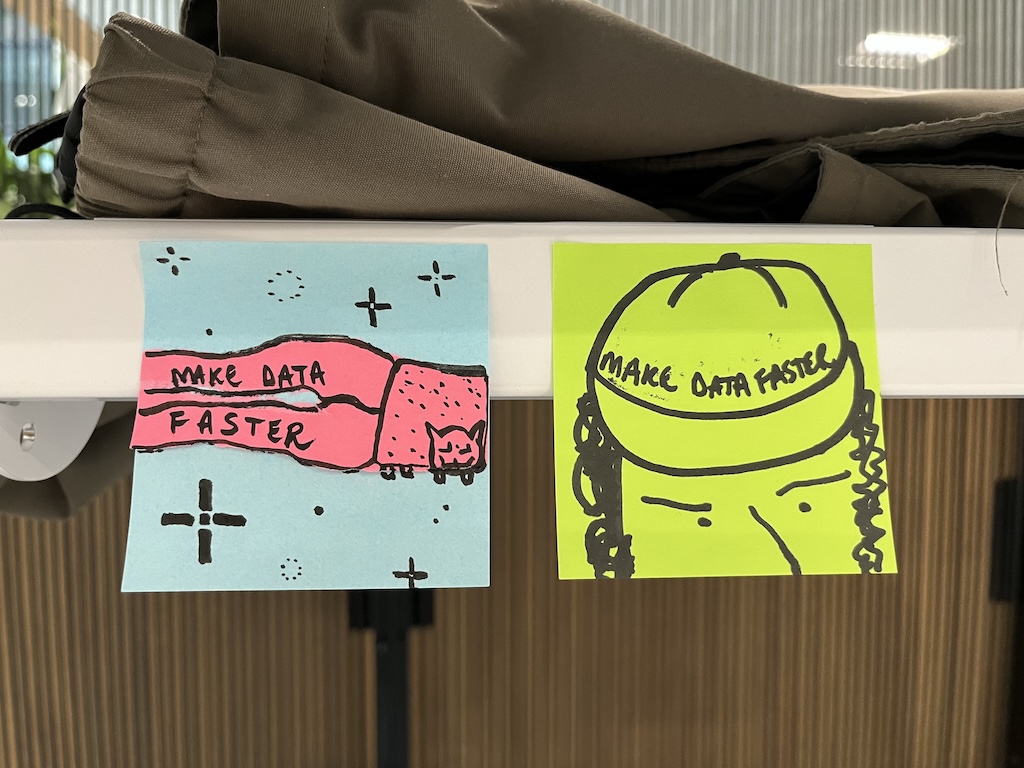 MAKE DATA
FASTER
MAKE DATA FASTER